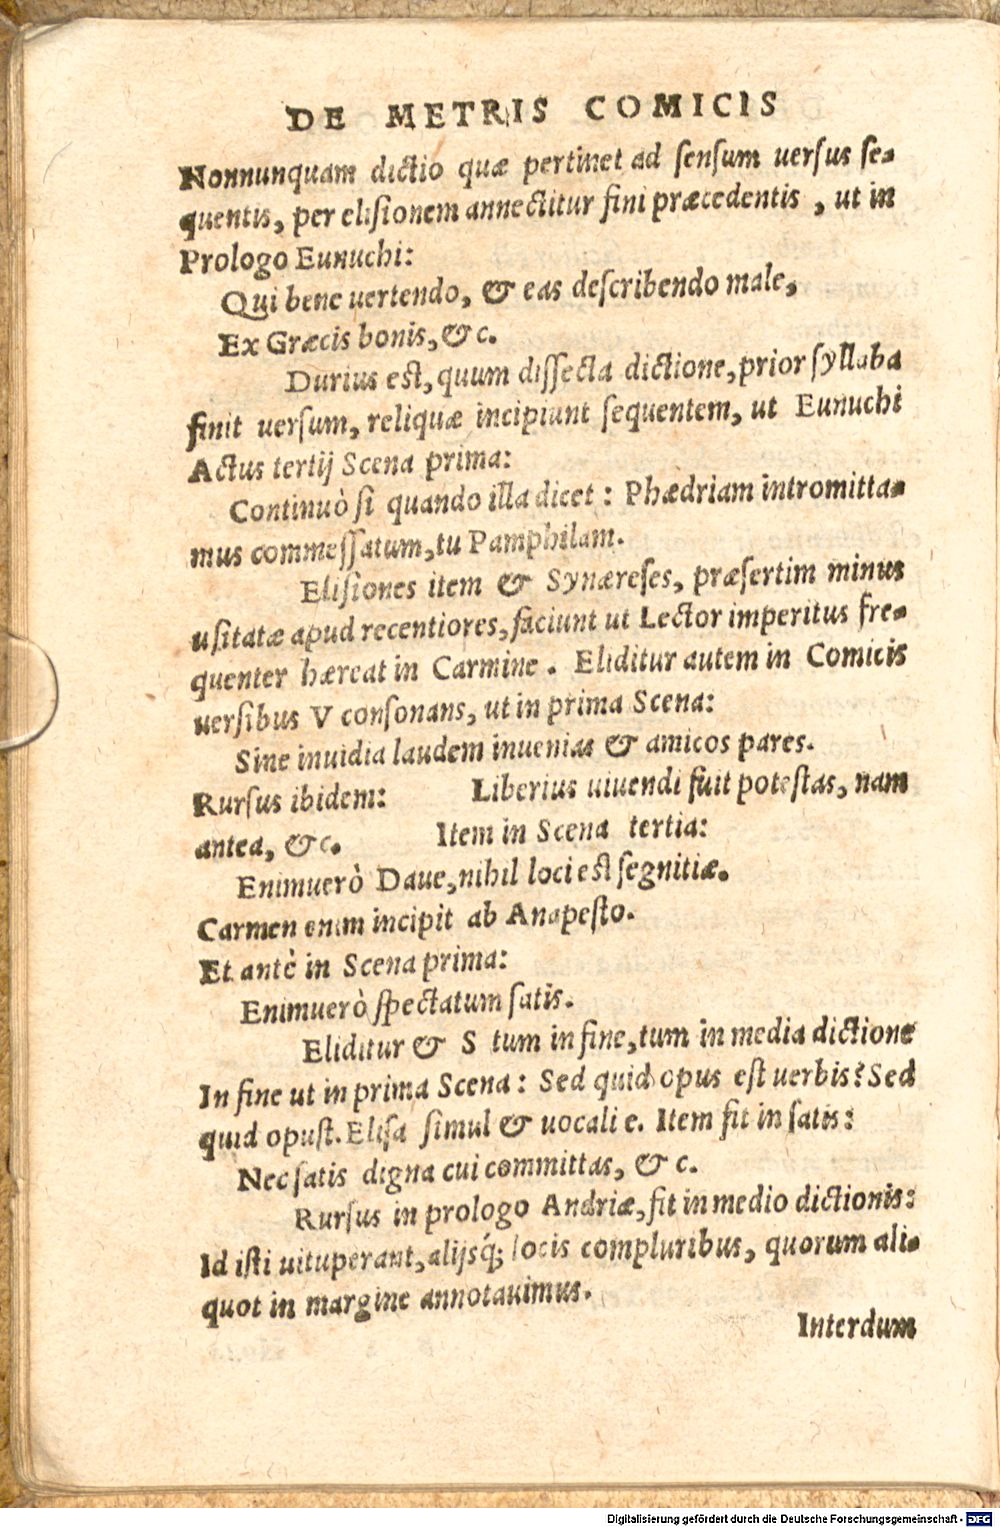 DE METRIS COMICIS
Nonnunquam dictio quæ pertinet ad sensum uersus se-
quentis, per elisionem annectitur fini præcedentis, ut in
Prologo Eunuchi:
Qui bene uertendo, & eas describendo male,
Ex Græcis bonis, & c.
Durius est, quum dissecta dictione, prior syllaba
finit uersum, reliquæ incipiunt sequentem, ut Eunuchi
Actus tertij Scena prima:
Continuò si quando illa dicet: Phædriam intromitta-
mus commessatum, tu Pamphilam.
Elisiones item & Synæreses, præsertim minus
usitatæ apud recentiores, faciunt ut Lector imperitus fre-
quenter hæreat in Carmine. Eliditur autem in Comicis
uersibus V consonans, ut in prima Scena:
Sine inuidia laudem inuenias & amicos pares.
Rursus ibidem: Liberius uiuendi fuit potestas, nam
antea, & c. Item in Scena tertia:
Enimuerò Daue, nihil loci est segnitiæ.
Carmen enim incipit ab Anapesto.
Et antè in Scena prima:
Enimuerò spectatum satis.
Eliditur & S tum in fine, tum in media dictione
In fine ut in prima Scena: Sed quid opus est uerbis? Sed
quid opust. Elisa simul & uocali e. Item fit in satis:
Nec satis digna cui committas, & c.
Rursus in prologo Andriæ, fit in medio dictionis:
Id isti uituperant, alijsq́; locis compluribus, quorum ali-
quot in margine annotauimus.
Interdum
Digitalisierung gefördert durch die Deutsche Forschungsgemeinschaft - DFG